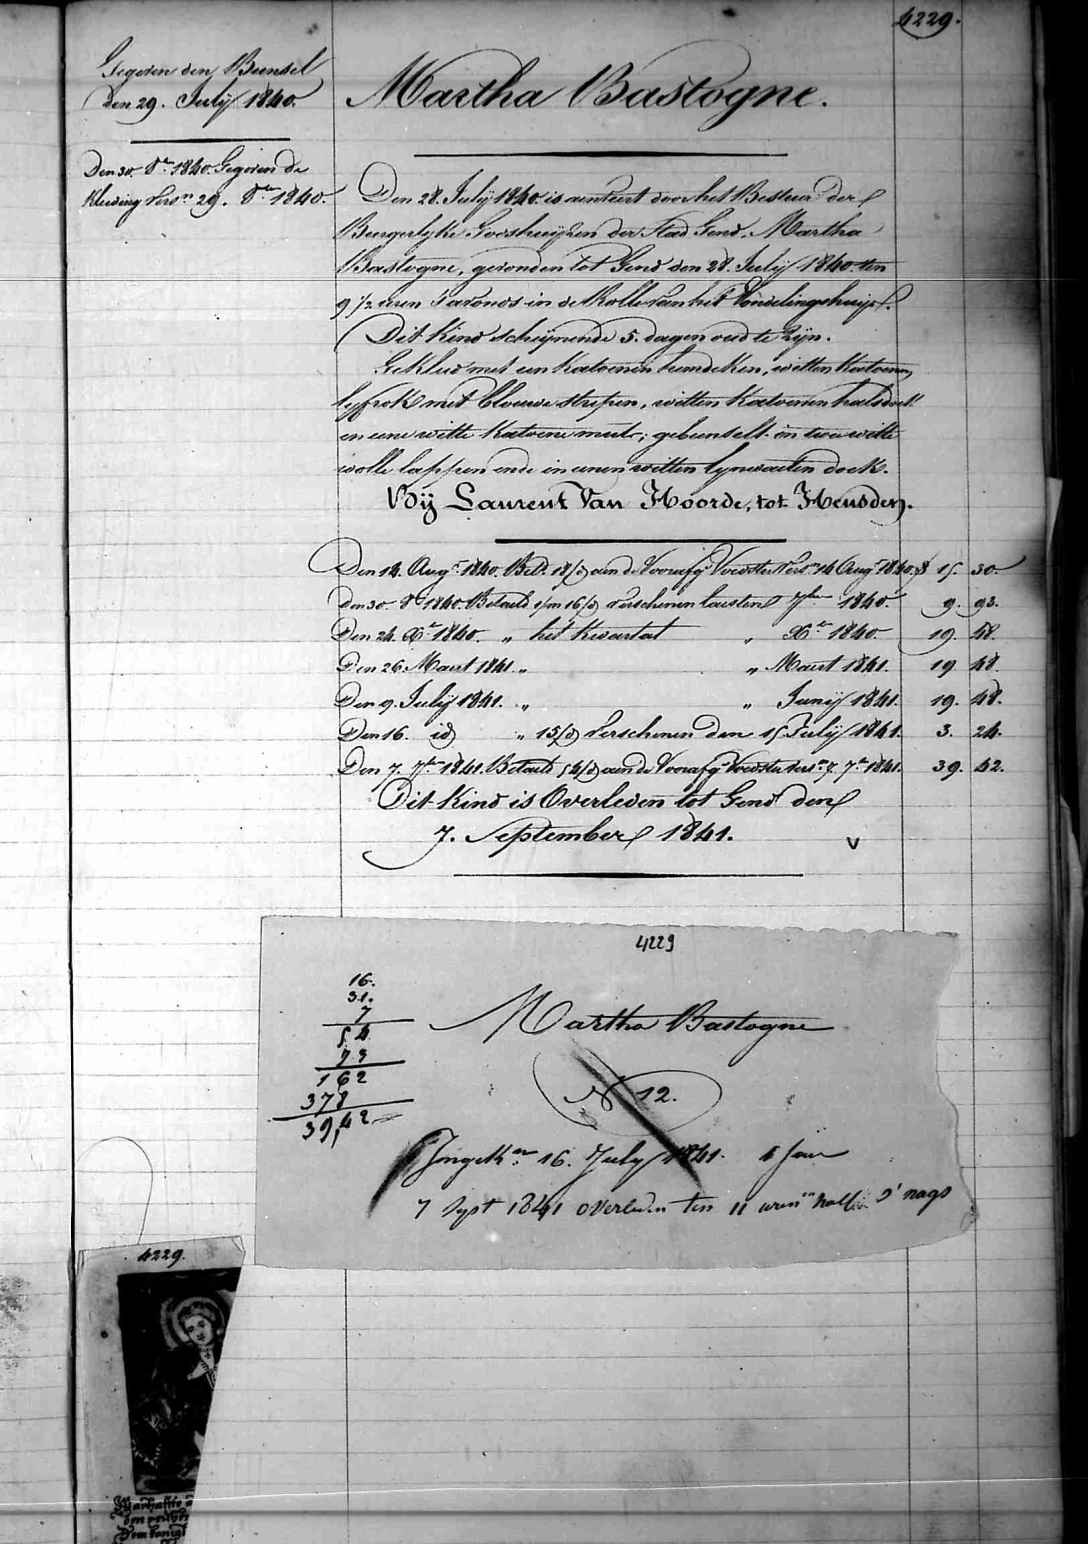 4229.
Gegeven den Bunsel
den 29. July 1840.
Martha Bastogne.
Den 30. 8re 1840. Gegeven de
Kleeding versn 29. 8re 1840.
Den 28. July 1840. is aenveirt door het Bestuer der
Burgerlyke Godshuijzen der Stad Gend, Martha
Bastogne, gevonden tot Gend den 28. July 1840 ten
9 1/2 uren s'avonds in de Rolle van het Vondelingshuijs.
Dit kind schijnende 5. dagen oud te Zijn.
Gekleed met een katoenen hemdeken, witten katoenen
lyfrok met blouwe strepen, witten katoenen halsdoek
en eene witte katoene muts; gebunselt in twee witte
wolle lappen ende in eenen witten lynwaeten doek.
Bij Laurent Van Hoorde, tot Heusden.
Den 14. Augt 1840. Bet. 18/d aen de Voorafge Voedster versn 14 Augt 1840. 15. 30.
Den 30. 8re 1840. Betaeld 1/m 16/d verschenen laesten 7bre 1840. 9. 93.
Den 24. Xre 1840. " het Kwartael " Xre 1840 19. 48.
Den 26. Maert 1841. " " Maert 1841. 19 48
Den 9. July 1841. " " Junij 1841. 19. 48.
Den 16. id " 15/d verschenen den 15 July 1841. 3. 24.
Den 7. 7re 1841. Betaeld 54/d aen de Voorafge Voedster versn 7. 7re 1841. 39. 42.
Dit Kind is Overleden tot Gend den
7. September 1841.
V
4229
16.
31.
7
54
73
162
378
39,42
Martha Bastogne
N 12.
Ingekn 16. July 1841. 1 Jaer
7 Sept 1841 overleden ten 11 uren half s' nags
4229.